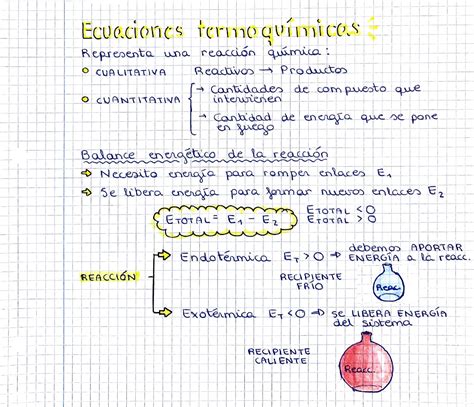 Ecuaciones termoquímicas
Representa una reacción química:
CUALITATIVA Reactivos → Productos
CUANTITATIVA → Cantidades de compuesto que
intervienen
→ Cantidad de energía que se pone
en juego
Balance energético de la reacción
⇒ Necesito energía para romper enlaces E₁
⇒ Se libera energía para formar nuevos enlaces E₂
ETOTAL = E₁ - E₂ ETOTAL < 0
ETOTAL > 0
REACCIÓN
Endotérmica ET > 0 → debemos APORTAR
ENERGÍA a la reacc.
RECIPIENTE
FRÍO
Reac.
Exotérmica ET < 0 ⇒ se LIBERA ENERGÍA
del sistema
RECIPIENTE
CALIENTE
Reacc.